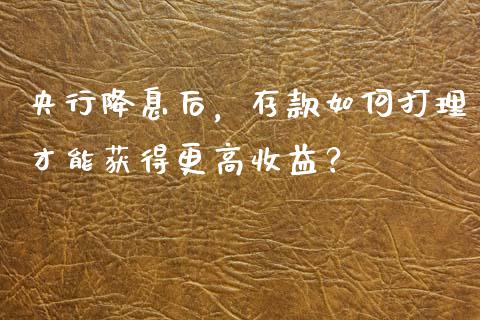 央行降息后，存款如何打理
才能获得更高收益？